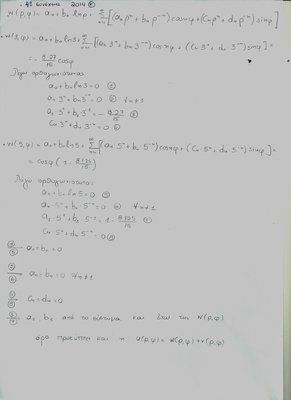 48 συνέχεια 2014 ②
w(ρ,φ) = a₀ + b₀ lnρ + Σ [(aₙρⁿ + bₙρ⁻ⁿ)cosnφ + (cₙρⁿ + dₙρ⁻ⁿ)sinnφ]
•w(3,φ) = a₀ + b₀ ln3 + Σ [(aₙ3ⁿ + bₙ3⁻ⁿ)cosnφ + (cₙ3ⁿ + dₙ3⁻ⁿ)sinnφ] =
= - 8·27/15 cosφ
Λόγω ορθογωνιότητας:
a₀ + b₀ ln3 = 0 ①
aₙ·3ⁿ + bₙ3⁻ⁿ = 0 ② ∀n≠1
a₁·3¹ + b₁·3⁻¹ = - 8·27/15 ③
cₙ·3ⁿ + dₙ·3⁻ⁿ = 0 ④
•w(5,φ) = a₀ + b₀ ln5 + Σ [(aₙ·5ⁿ + bₙ·5⁻ⁿ)cosnφ + (cₙ·5ⁿ + dₙ·5⁻ⁿ)sinnφ] =
= cosφ (1 - 8·125/15)
Λόγω ορθογωνιότητας:
a₀ + b₀ ln5 = 0 ⑤
aₙ·5ⁿ + bₙ·5⁻ⁿ = 0 ⑥ ∀n≠1
a₁·5¹ + b₁·5⁻¹ = 1 - 8·125/15 ⑦
cₙ·5ⁿ + dₙ·5⁻ⁿ = 0 ⑧
a₀ = b₀ = 0
aₙ = bₙ = 0 ∀n≠1
cₙ = dₙ = 0
a₁, b₁ από το σύστημα και έτσι την w(ρ,φ)
άρα προκύπτει και η u(ρ,φ) = w(ρ,φ) + v(ρ,φ)